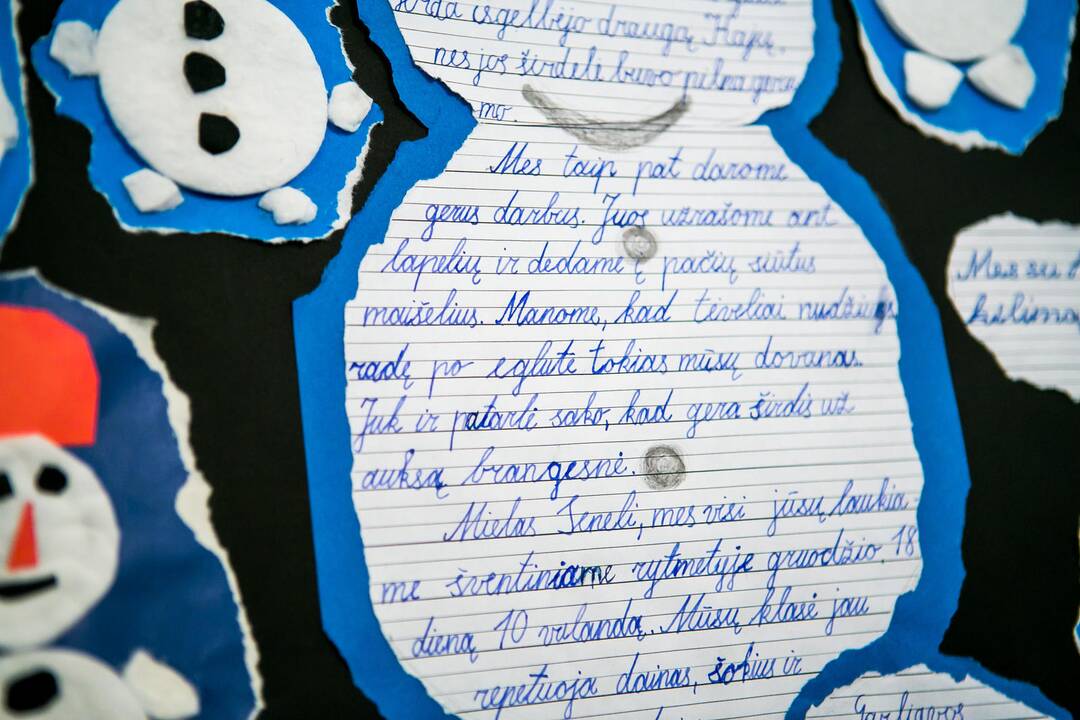 išgelbėjo draugą Kajų,
nes jos širdelė buvo pilna geru
mo.
Mes taip pat darome
gerus darbus. Juos užrašome ant
lapelių ir dedame į pačių siūtus
maišelius. Manome, kad tėveliai nudžiugs
radę po eglute tokias mūsų dovanas.
Juk ir patarlė sako, kad gera širdis už
auksą brangesnė.
Mielas Seneli, mes visi jūsų laukia-
me šventiniame rytmetyje gruodžio 18
dieną 10 valandą. Mūsų klasė jau
repetuoja dainas, šokius ir
Mes su
Garliavos